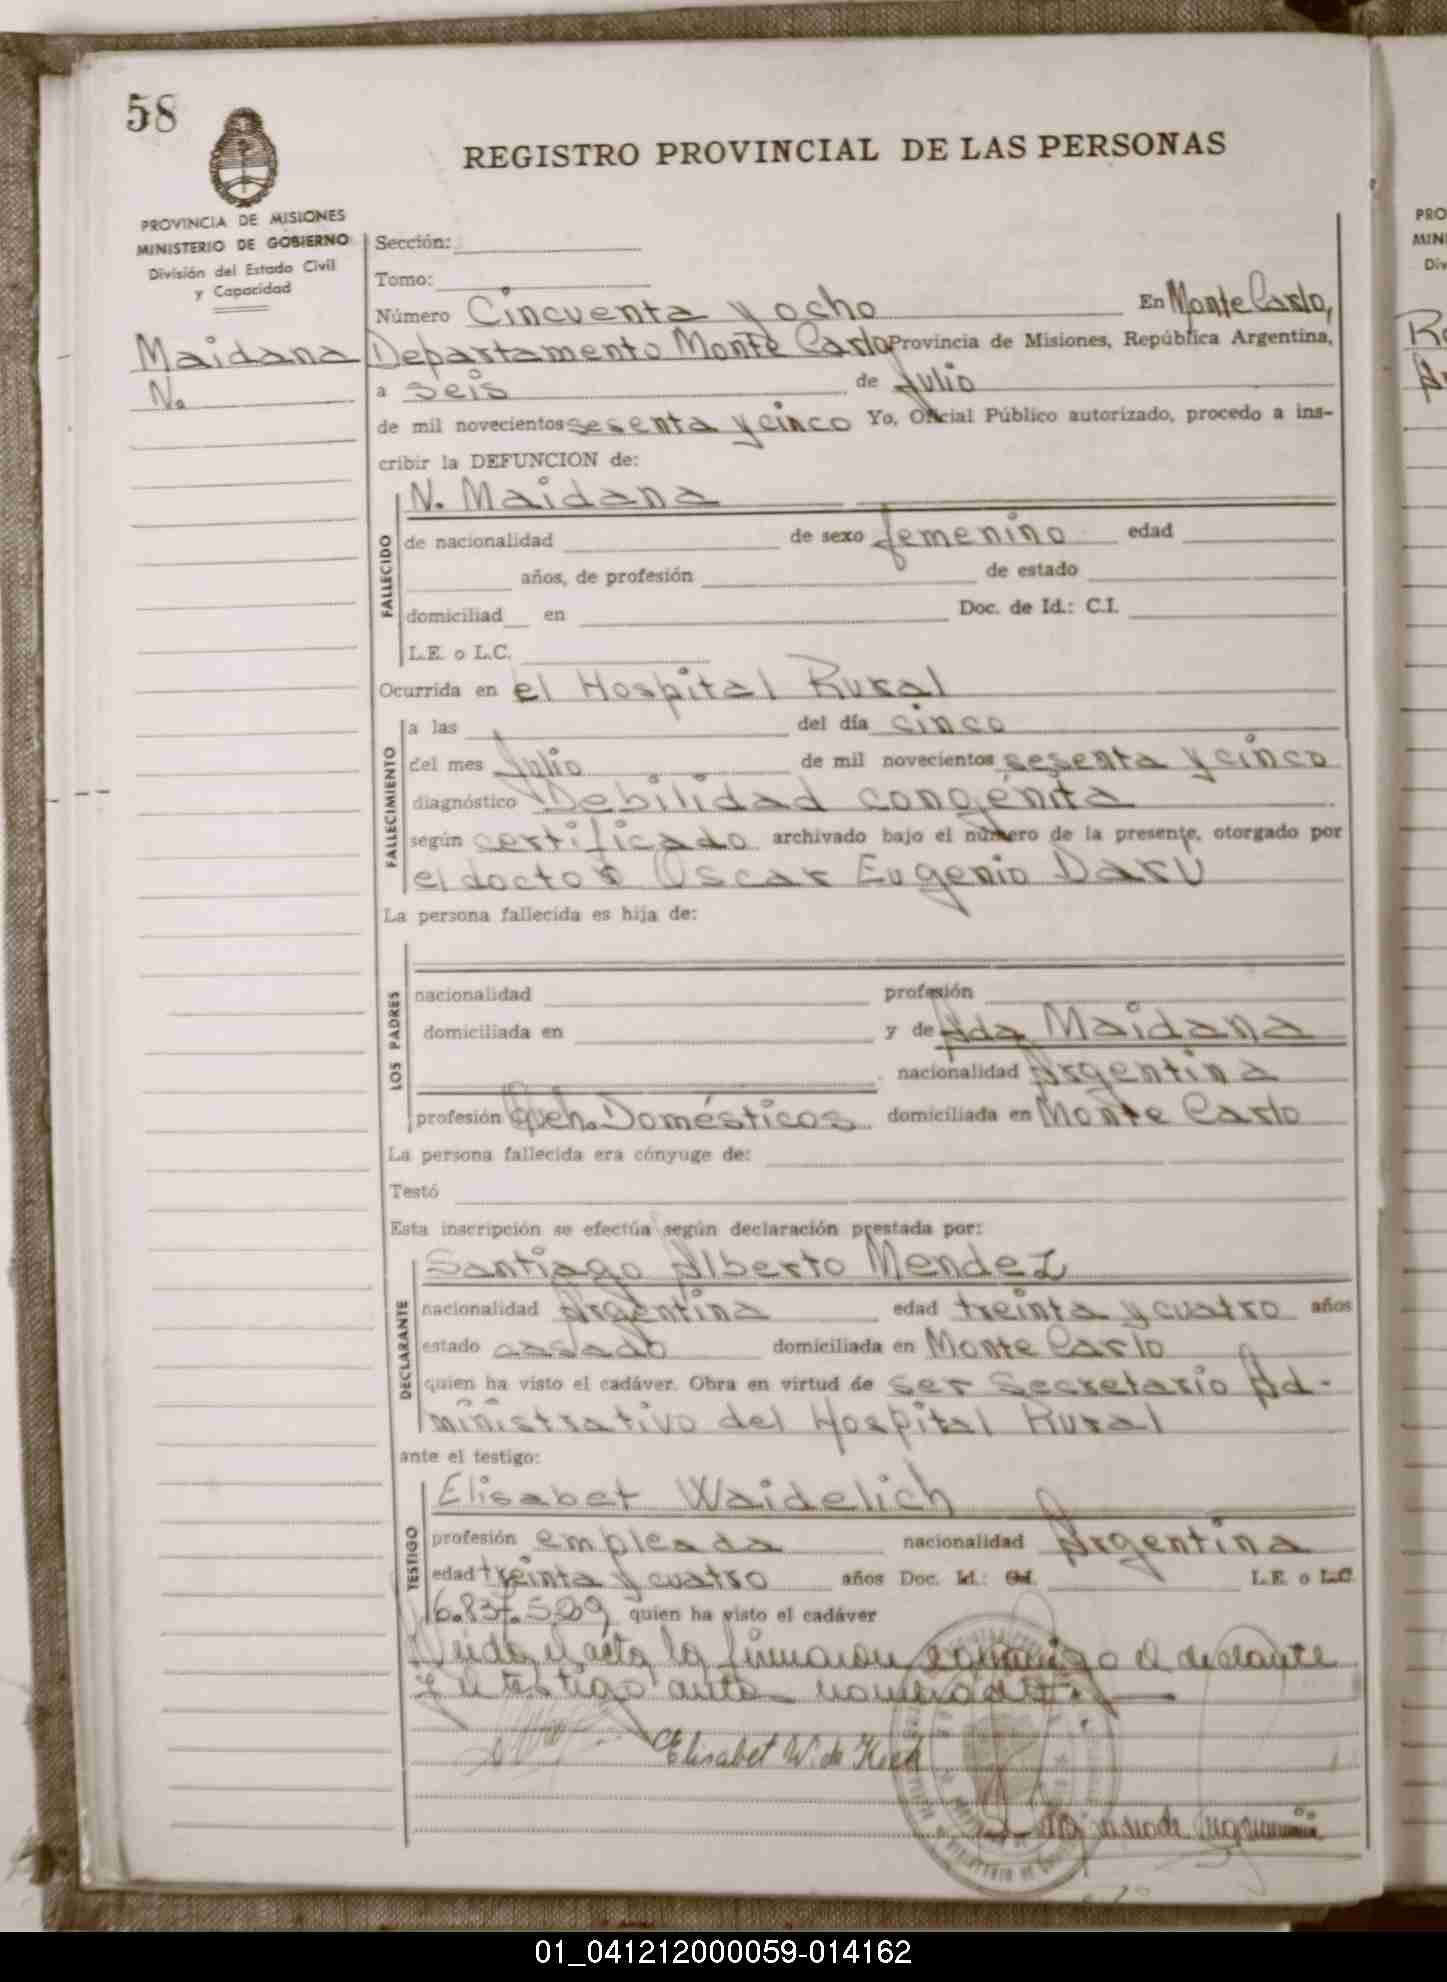 58
REGISTRO PROVINCIAL DE LAS PERSONAS
PROVINCIA DE MISIONES
MINISTERIO DE GOBIERNO
División del Estado Civil
y Capacidad
Maidana
N.
Sección:
Tomo:
Número Cincuenta y ocho En Monte Carlo,
Departamento Monte Carlo Provincia de Misiones, República Argentina,
a seis de Julio
de mil novecientos sesenta y cinco Yo, Oficial Público autorizado, procedo a ins-
cribir la DEFUNCION de:
FALLECIDO
N. Maidana
de nacionalidad de sexo femenino edad
años, de profesión de estado
domiciliad en Doc. de Id.: C.I.
L.E. o L.C.
Ocurrida en el Hospital Rural
FALLECIMIENTO
a las del día cinco
del mes Julio de mil novecientos sesenta y cinco
diagnóstico Debilidad congénita
según certificado archivado bajo el número de la presente, otorgado por
el doctor Oscar Eugenio Daru
La persona fallecida es hija de:
LOS PADRES
nacionalidad profesión
domiciliada en y de Ada Maidana
nacionalidad Argentina
profesión Queh. Domésticos domiciliada en Monte Carlo
La persona fallecida era cónyuge de:
Testó
Esta inscripción se efectúa según declaración prestada por:
DECLARANTE
Santiago Alberto Mendez
nacionalidad Argentina edad treinta y cuatro años
estado casado domiciliada en Monte Carlo
quien ha visto el cadáver. Obra en virtud de ser Secretario Ad-
ministrativo del Hospital Rural
ante el testigo:
TESTIGO
Elisabet Waidelich
profesión empleada nacionalidad Argentina
edad treinta y cuatro años Doc. Id.: L.E. o L.C.
6.837.529 quien ha visto el cadáver
Leida el acta la firmaron conmigo el declarante
y el testigo antes nombrado.
Elisabet W. de Koch
PRO
MINI
Div
01_041212000059-014162